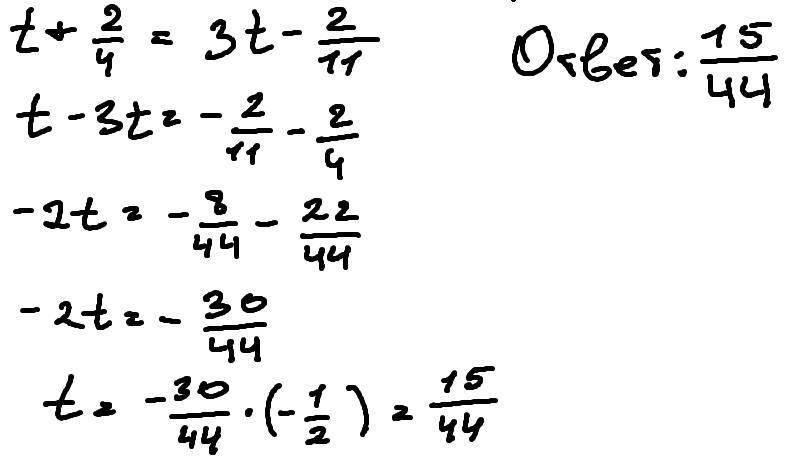 t + 2/4 = 3t - 2/11
Ответ: 15/44
t - 3t = - 2/11 - 2/4
-2t = - 8/44 - 22/44
-2t = - 30/44
t = - 30/44 · (- 1/2) = 15/44